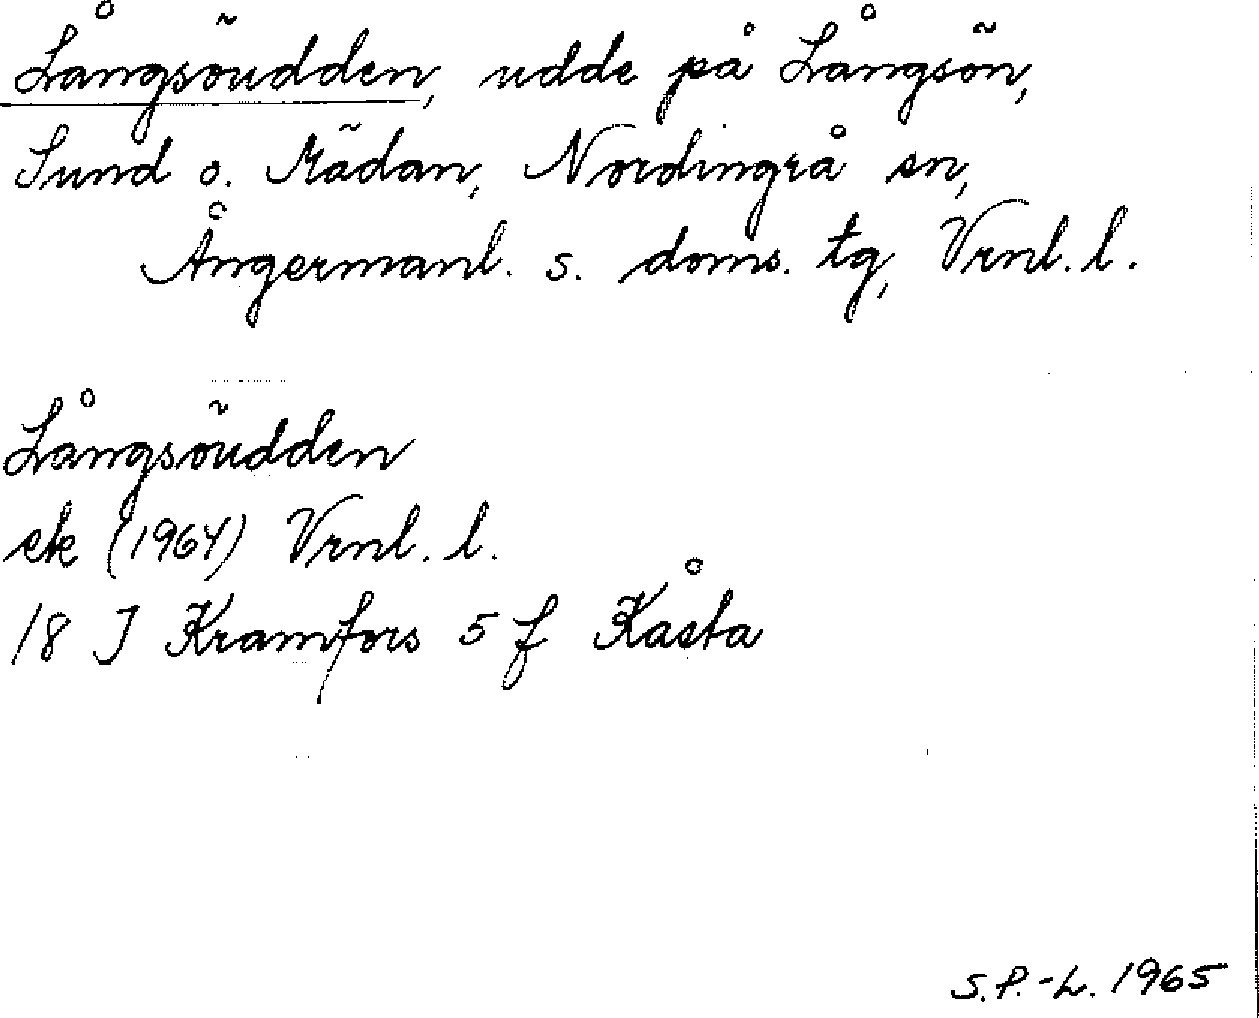 Långsöudden, udde på Långsön,
Sund o. Mädan, Nordingrå sn,
Ångermanl. s. doms. tg, Vrnl. l.
Långsöudden
ek (1964) Vrnl. l.
18 J Kramfors 5 f Kåsta
S.P.-L. 1965